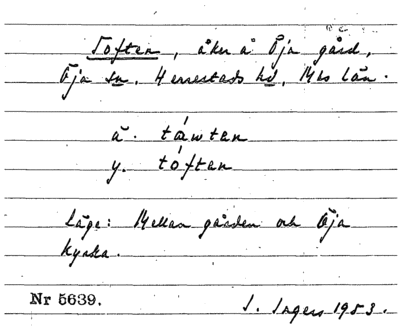 Toften, åker å Öja gård,
Öja sn, Herrestads hd, Mhs län.
ä. táwtan
y. tóftan
Läge: Mellan gården och Öja
kyrka.
Nr 5639.
I. Ingers 1953.